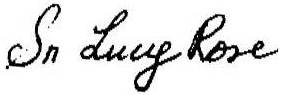 Sr Lucy Rose